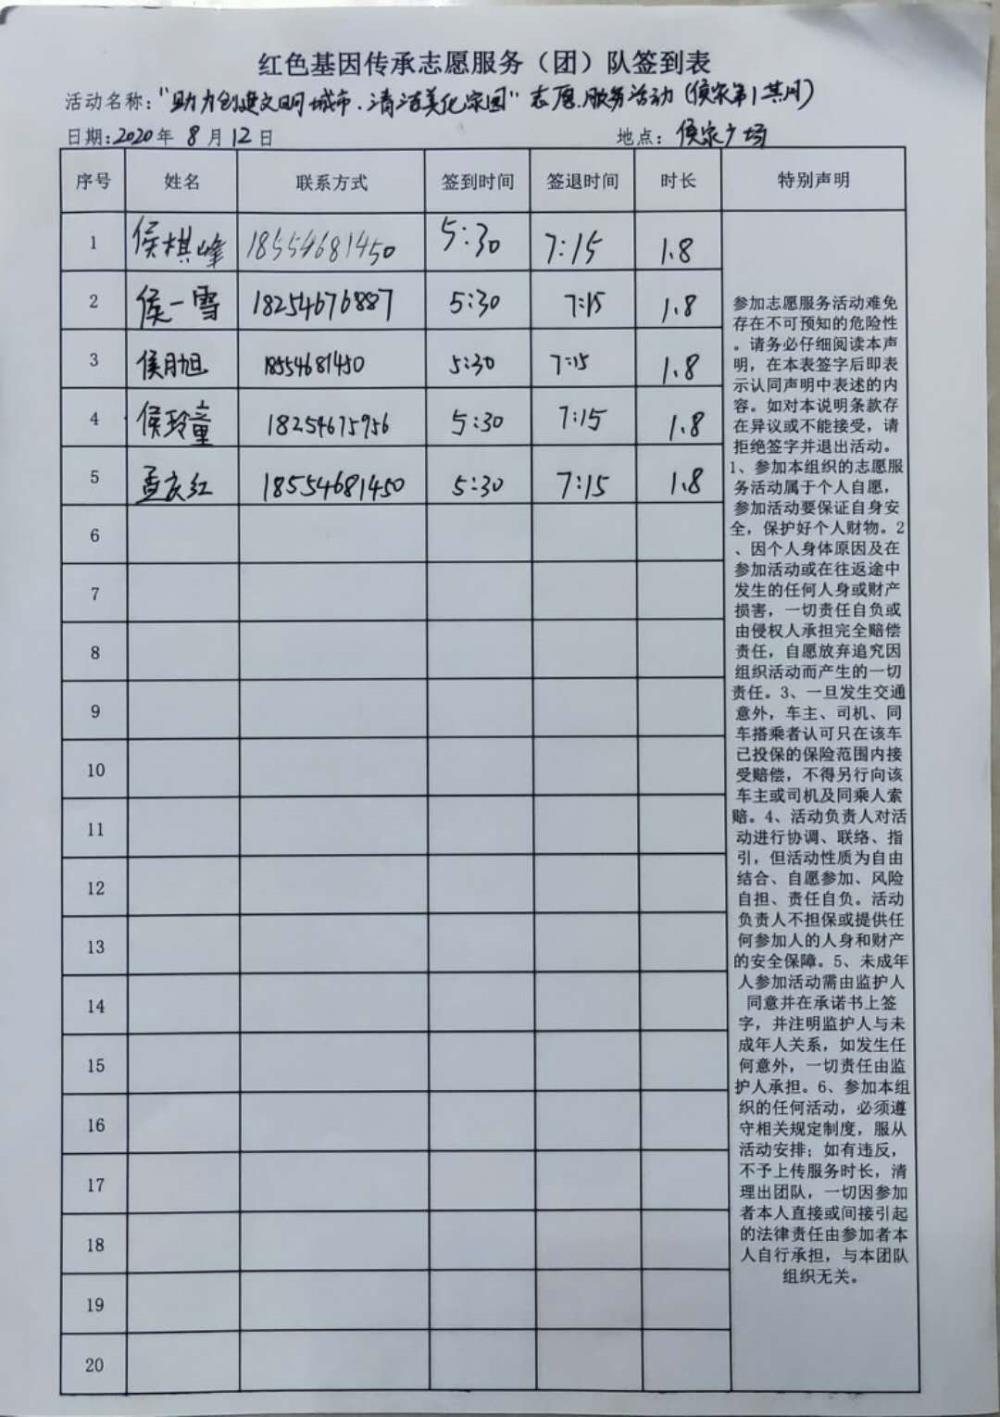 红色基因传承志愿服务（团）队签到表
活动名称："助力创建文明城市.清洁美化家园"志愿服务活动（侯家第1期）
日期：2020年 8月12日 地点：侯家广场
序号 姓名 联系方式 签到时间 签退时间 时长 特别声明
1 侯棋峰 18554681450 5:30 7:15 1.8
2 侯一雪 18254676887 5:30 7:15 1.8
3 侯月旭 18554681450 5:30 7:15 1.8
4 侯玲童 18254675956 5:30 7:15 1.8
5 孟庆红 18554681450 5:30 7:15 1.8
6
7
8
9
10
11
12
13
14
15
16
17
18
19
20
参加志愿服务活动难免
存在不可预知的危险性
。请务必仔细阅读本声
明，在本表签字后即表
示认同声明中表述的内
容。如对本说明条款存
在异议或不能接受，请
拒绝签字并退出活动。
1、参加本组织的志愿服
务活动属于个人自愿，
参加活动要保证自身安
全，保护好个人财物。2
、因个人身体原因及在
参加活动或在往返途中
发生的任何人身或财产
损害，一切责任自负或
由侵权人承担完全赔偿
责任，自愿放弃追究因
组织活动而产生的一切
责任。3、一旦发生交通
意外，车主、司机、同
车搭乘者认可只在该车
已投保的保险范围内接
受赔偿，不得另行向该
车主或司机及同乘人索
赔。4、活动负责人对活
动进行协调、联络、指
引，但活动性质为自由
结合、自愿参加、风险
自担、责任自负。活动
负责人不担保或提供任
何参加人的人身和财产
的安全保障。5、未成年
人参加活动需由监护人
同意并在承诺书上签
字，并注明监护人与未
成年人关系，如发生任
何意外，一切责任由监
护人承担。6、参加本组
织的任何活动，必须遵
守相关规定制度，服从
活动安排；如有违反，
不予上传服务时长，清
理出团队，一切因参加
者本人直接或间接引起
的法律责任由参加者本
人自行承担，与本团队
组织无关。